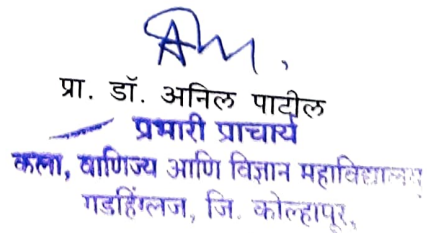 प्रा. डॉ. अनिल पाटील
प्रभारी प्राचार्य
कला, वाणिज्य आणि विज्ञान महाविद्यालय
गडहिंग्लज, जि. कोल्हापूर.